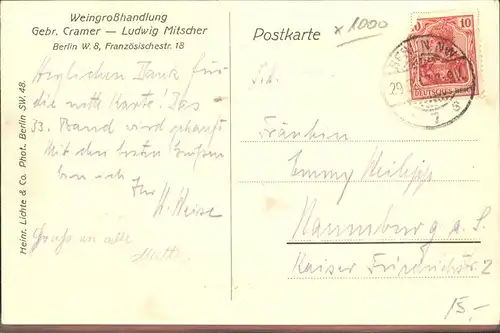 Weingroßhandlung
Gebr. Cramer — Ludwig Mitscher
Berlin W. 8, Französischestr. 18
Herzlichen Dank für
die nette Karte! Das
33. Band wird gekauft
Mit den besten Grüßen
bin ich
Ihr
H. Heise
Gruss an alle
Heinr. Lichte & Co. Phot. Berlin SW. 48.
Postkarte
x 1000
10
DEUTSCHES REICH
BERLIN NW
29
7
Fräulein
Emmy Philipp
Naumburg a. S.
Kaiser Friedrichstr. 2
15.-